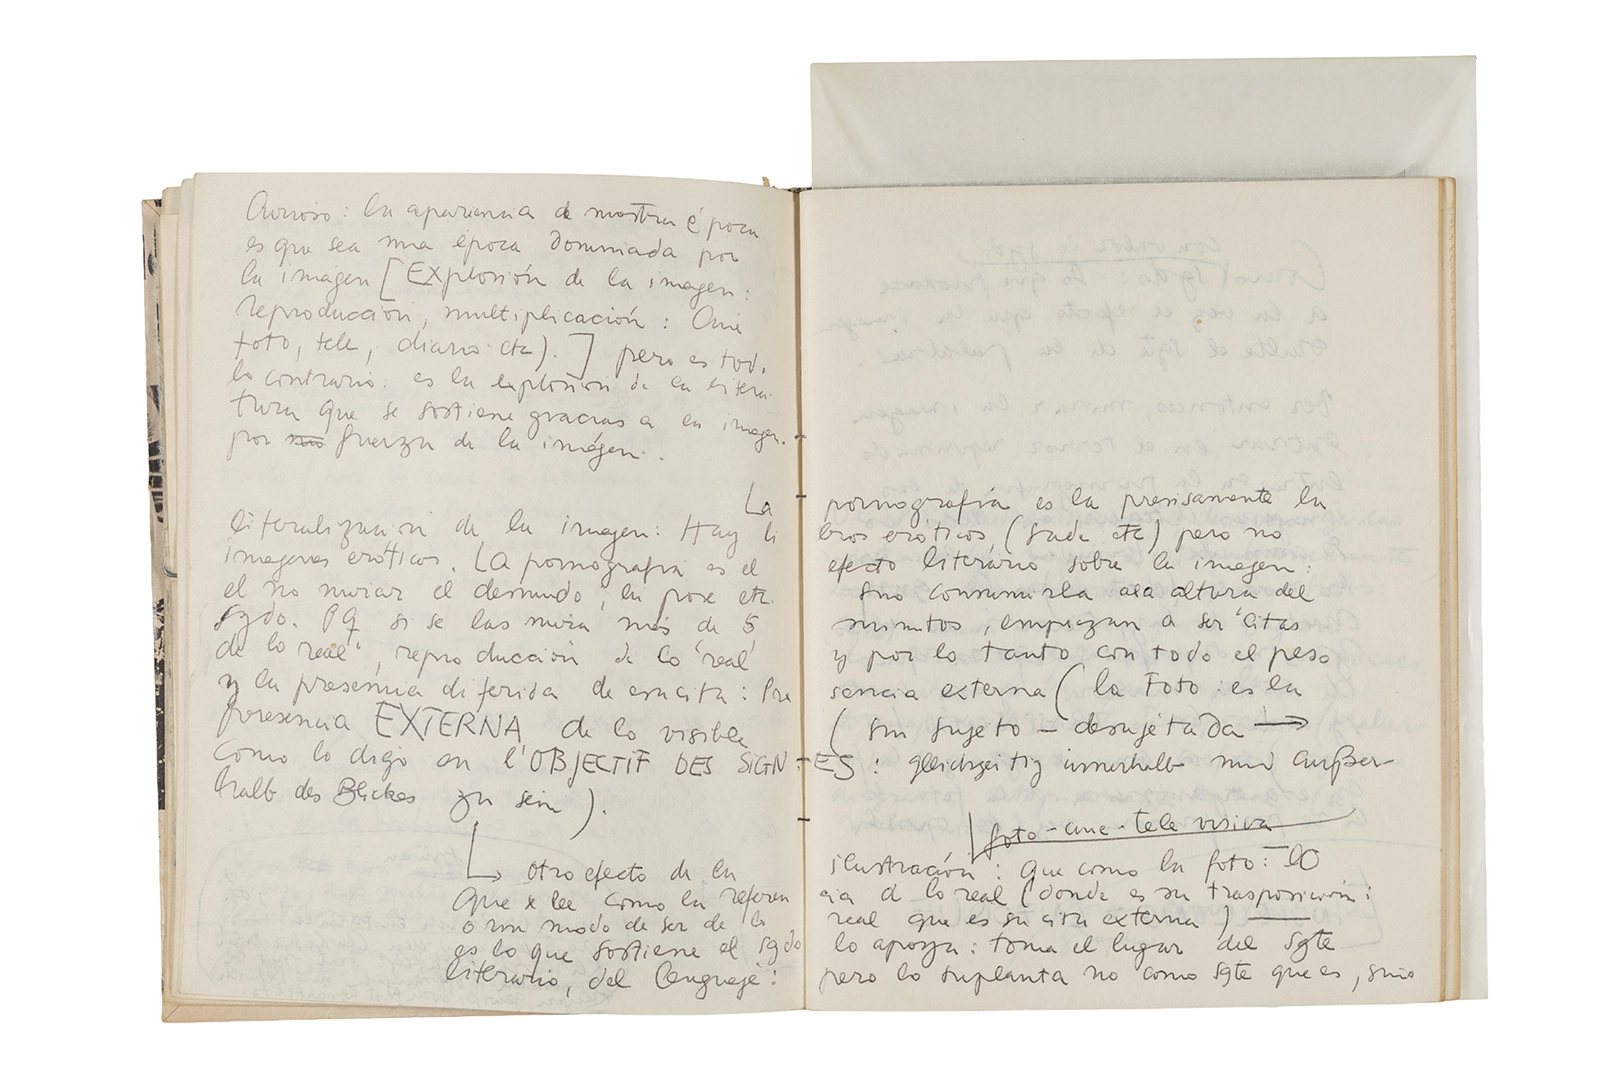 Curioso: la apariencia de nuestra época
es que sea una época dominada por
la imagen [Explosión de la imagen:
reproducción, multiplicación: Cine
foto, tele, diario etc).] pero es todo
lo contrario: es la explosión de la litera
tura que se sostiene gracias a la imagen.
por fuerza de la imágen.
La pornografía es la precisamente la
literalización de la imagen: Hay li
bros eróticos (Sade etc) pero no
imagenes eróticos. La pornografía es el
efecto literário sobre la imagen:
el no mirar el desnudo, la pose etc.
sino consumirla a la altura del
sgdo. Pq si se las mira más de 5
minutos, empiezan a ser "citas
de lo real", reproducción de lo 'real'
y por lo tanto con todo el peso
y la presencia diferida de esa cita: Pre
sencia externa (la Foto: es la
presencia EXTERNA de lo visible
(sin sujeto – desujetada →
como lo digo en l'OBJECTIF DES SIGN-ES: gleichzeitig innerhalb und außer-
halb des Blickes zu sein).
foto-cine-televisiva
Otro efecto de la ilustración: Que como la foto: LO
que se lee como la referen
cia d lo real (donde es su trasposición:
o un modo de ser de lo
real que es su cita externa) —
es lo que sostiene el sgdo
lo apoya: toma el lugar del sgte
literario, del lenguaje:
pero lo suplanta no como sgte que es, sino